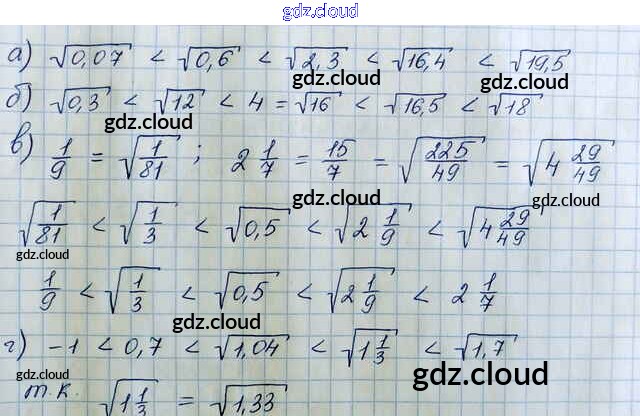 gdz.cloud
а) √0,07 < √0,6 < √2,3 < √16,4 < √19,5
gdz.cloud gdz.cloud
б) √0,3 < √12 < 4 = √16 < √16,5 < √18
gdz.cloud
в) 1/9 = √(1/81) ; 2 1/7 = 15/7 = √(225/49) = √(4 29/49)
gdz.cloud gdz.cloud
√(1/81) < √(1/3) < √0,5 < √(2 1/9) < √(4 29/49)
gdz.cloud gdz.cloud
1/9 < √(1/3) < √0,5 < √(2 1/9) < 2 1/7
gdz.cloud
г) -1 < 0,7 < √1,04 < √(1 1/3) < √1,7
gdz.cloud gdz.cloud
т.к. √(1 1/3) = √1,33
gdz.cloud